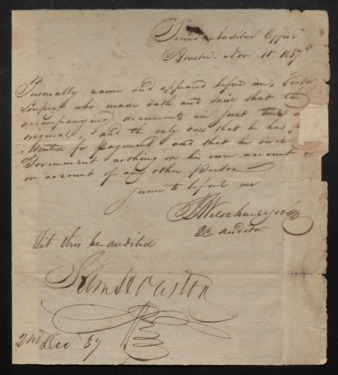 Second Auditors Office
Houston, Nov. 18. 1837
Personally came and appeared before me,
who made oath and said that the
accompanying documents are just true &
original, and the only ones that he has
for payment, and that he owes
Government nothing on his own account or
on account of any other Person
before me
2d Auditor
Let this be audited
Sam Houston
2nd Dec 37